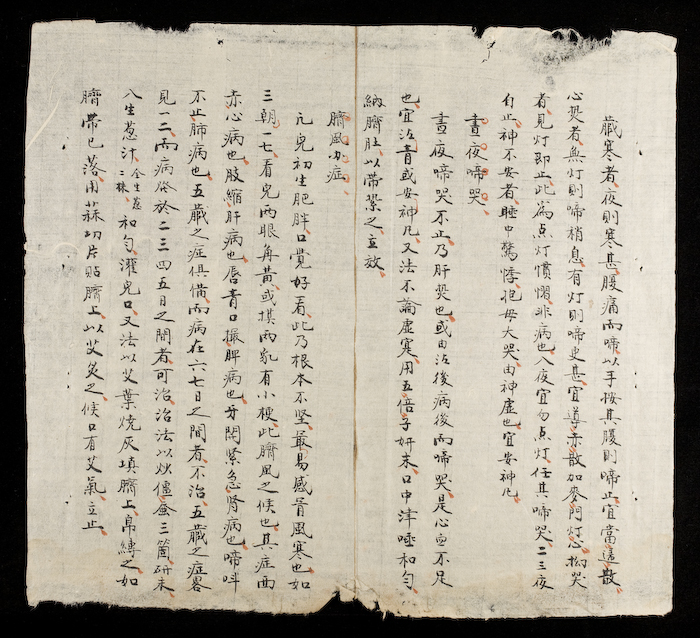 臟寒者夜則寒甚腹痛而啼以手按其腹則啼止宜當䢔散
心熒者無灯則啼稍息有灯則啼更甚宜導赤散加麥門灯心拗哭
者見灯即止此為点灯慣熠非病也入夜宜勿点灯任其啼哭二三夜
自止神不安者睡中驚悸抱母大哭由神虛也宜安神凡
晝夜啼哭
晝夜啼哭不止乃肝熒也或由泻後病後而啼哭是心血不足
也宜泻青或安神凡又法不論虛寒用五倍子妍末口中津唾和勻
納臍肚以帶絷之立效
臍風水症
凢兒初生肥胖口覚好看此乃根本不坚最易感冐風寒也如
三朝一七看兒两眼角黃或摸两乳有小梗此臍風之候也其症面
赤心病也肢縮肝病也唇青口撮脾病也牙関緊急肾病也啼呌
不止肺病也五臟之症俱備而病在六七日之間者不治五臟之症畧
見一二而病發於二三四五日之間者可治治法以炒僵蚕三箇研末
入生葱汁全生葱二株和勻灌兒口又法以艾葉焼灰填臍上帛縛之如
臍帶已落用蒜切片貼臍上以艾灸之候口有艾氣立止